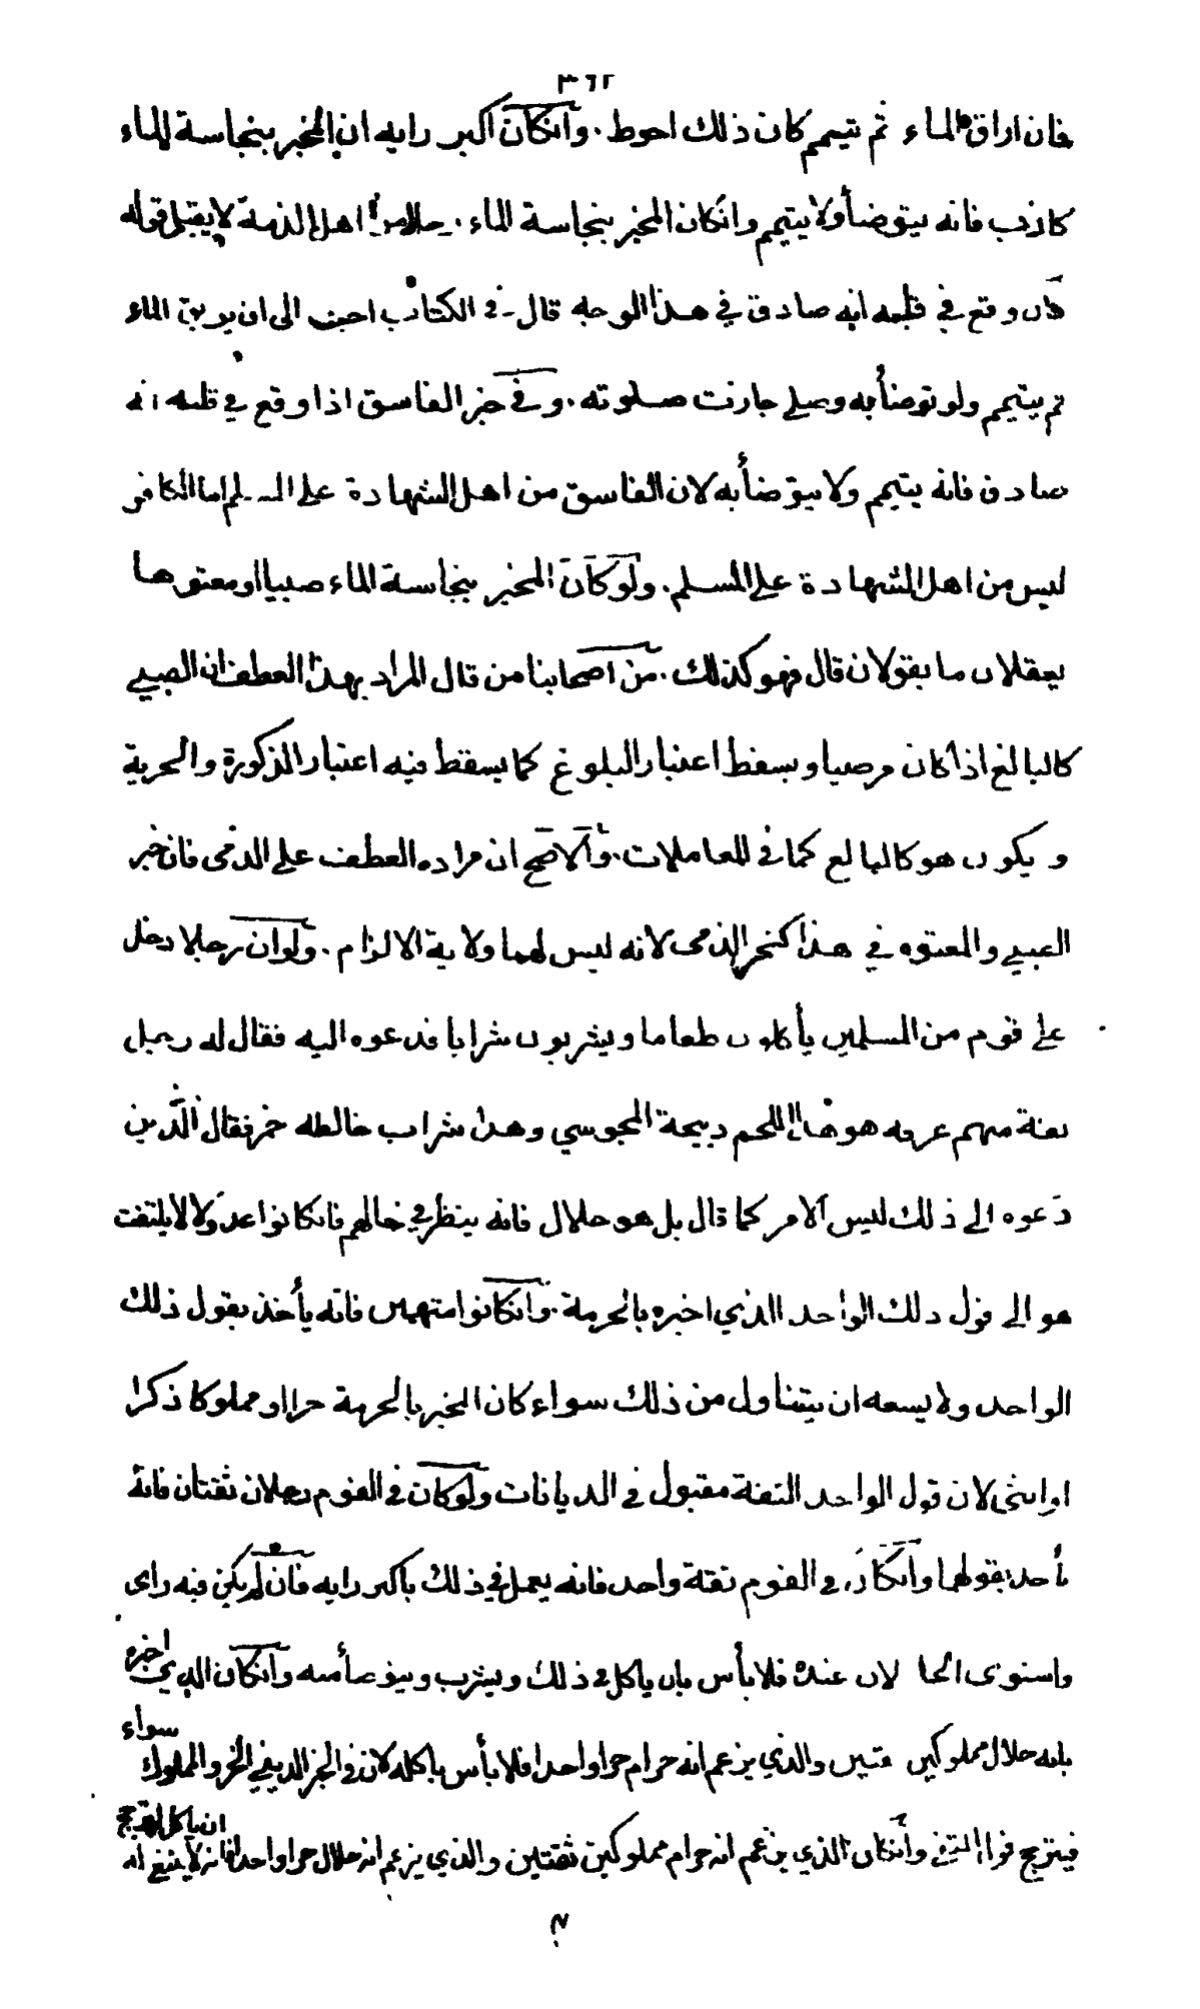 ٣٦٢
فان اراق الماء ثم تيمم كان ذلك احوط. وانكان اكبر رايه ان المخبر بنجاسة الماء
كاذب فانه يتوضأ ولا يتيمم وانكان المخبر بنجاسة الماء. رجلا من اهل الذمة لا يقبل قوله
فان وقع في قلبه انه صادق في هذا الوجه قال في الكتاب احب الى ان يريق الماء
ثم يتيمم ولو توضأ به وصلى جازت صلوته. وفي خبر الفاسق اذا وقع في قلبه انه
صادق فانه يتيمم ولا يتوضأ به لان الفاسق من اهل الشهادة على المسلم اما الكافر
ليس من اهل الشهادة على المسلم. ولو كان المخبر بنجاسة الماء صبيا او معتوها
يعقلان ما يقولان قال فهو كذلك. من اصحابنا من قال المراد بهذا العطف ان الصبي
كالبالغ اذا كان مرضيا ويسقط اعتبار البلوغ كما يسقط فيه اعتبار الذكورة والحرية
ويكون هو كالبالغ كما في المعاملات. والاصح ان مراده العطف على الذمى فان خبر
الصبي والمعتوه في هذا كخبر الذمى لانه ليس لهما ولاية الالزام. ولو ان رجلا دخل
على قوم من المسلمين يأكلون طعاما ويشربون شرابا فدعوه اليه فقال له رجل
ثقة منهم عرفه هو هذا اللحم ذبيحة المجوسي وهذا شراب خالطه خمر فقال الذين
دعوه الى ذلك ليس الامر كما قال بل هو حلال فانه ينظر في حالهم فانكانوا عدولا لا يلتفت
هو الى قول ذلك الواحد الذي اخبره بالحرمة. وانكانوا متهمين فانه يأخذ بقول ذلك
الواحد ولا يسعه ان يتناول من ذلك سواء كان المخبر بالحرمة حرا او مملوكا ذكرا
او انثى لان قول الواحد الثقة مقبول في الديانات ولو كان في القوم رجلان ثقتان فانه
يأخذ بقولهما وانكان في القوم ثقة واحد فانه يعمل في ذلك باكبر رايه فان لم يكن فيه راى
واستوى الحالان عنده فلا بأس بان ياكل ذلك ويشرب ويتوضأ منه وانكان الذي اخبره
بانه حلال مملوكين ثقتين والذي يزعم انه حرام حرا واحدا فلا بأس باكله لان في الخبر الديني الحر والمملوك سواء
فيترجح قول الثقتين وانكان الذي يزعم انه حرام مملوكين ثقتين والذي يزعم انه حلال حرا واحدا فانه لا ينبغي له ان ياكل